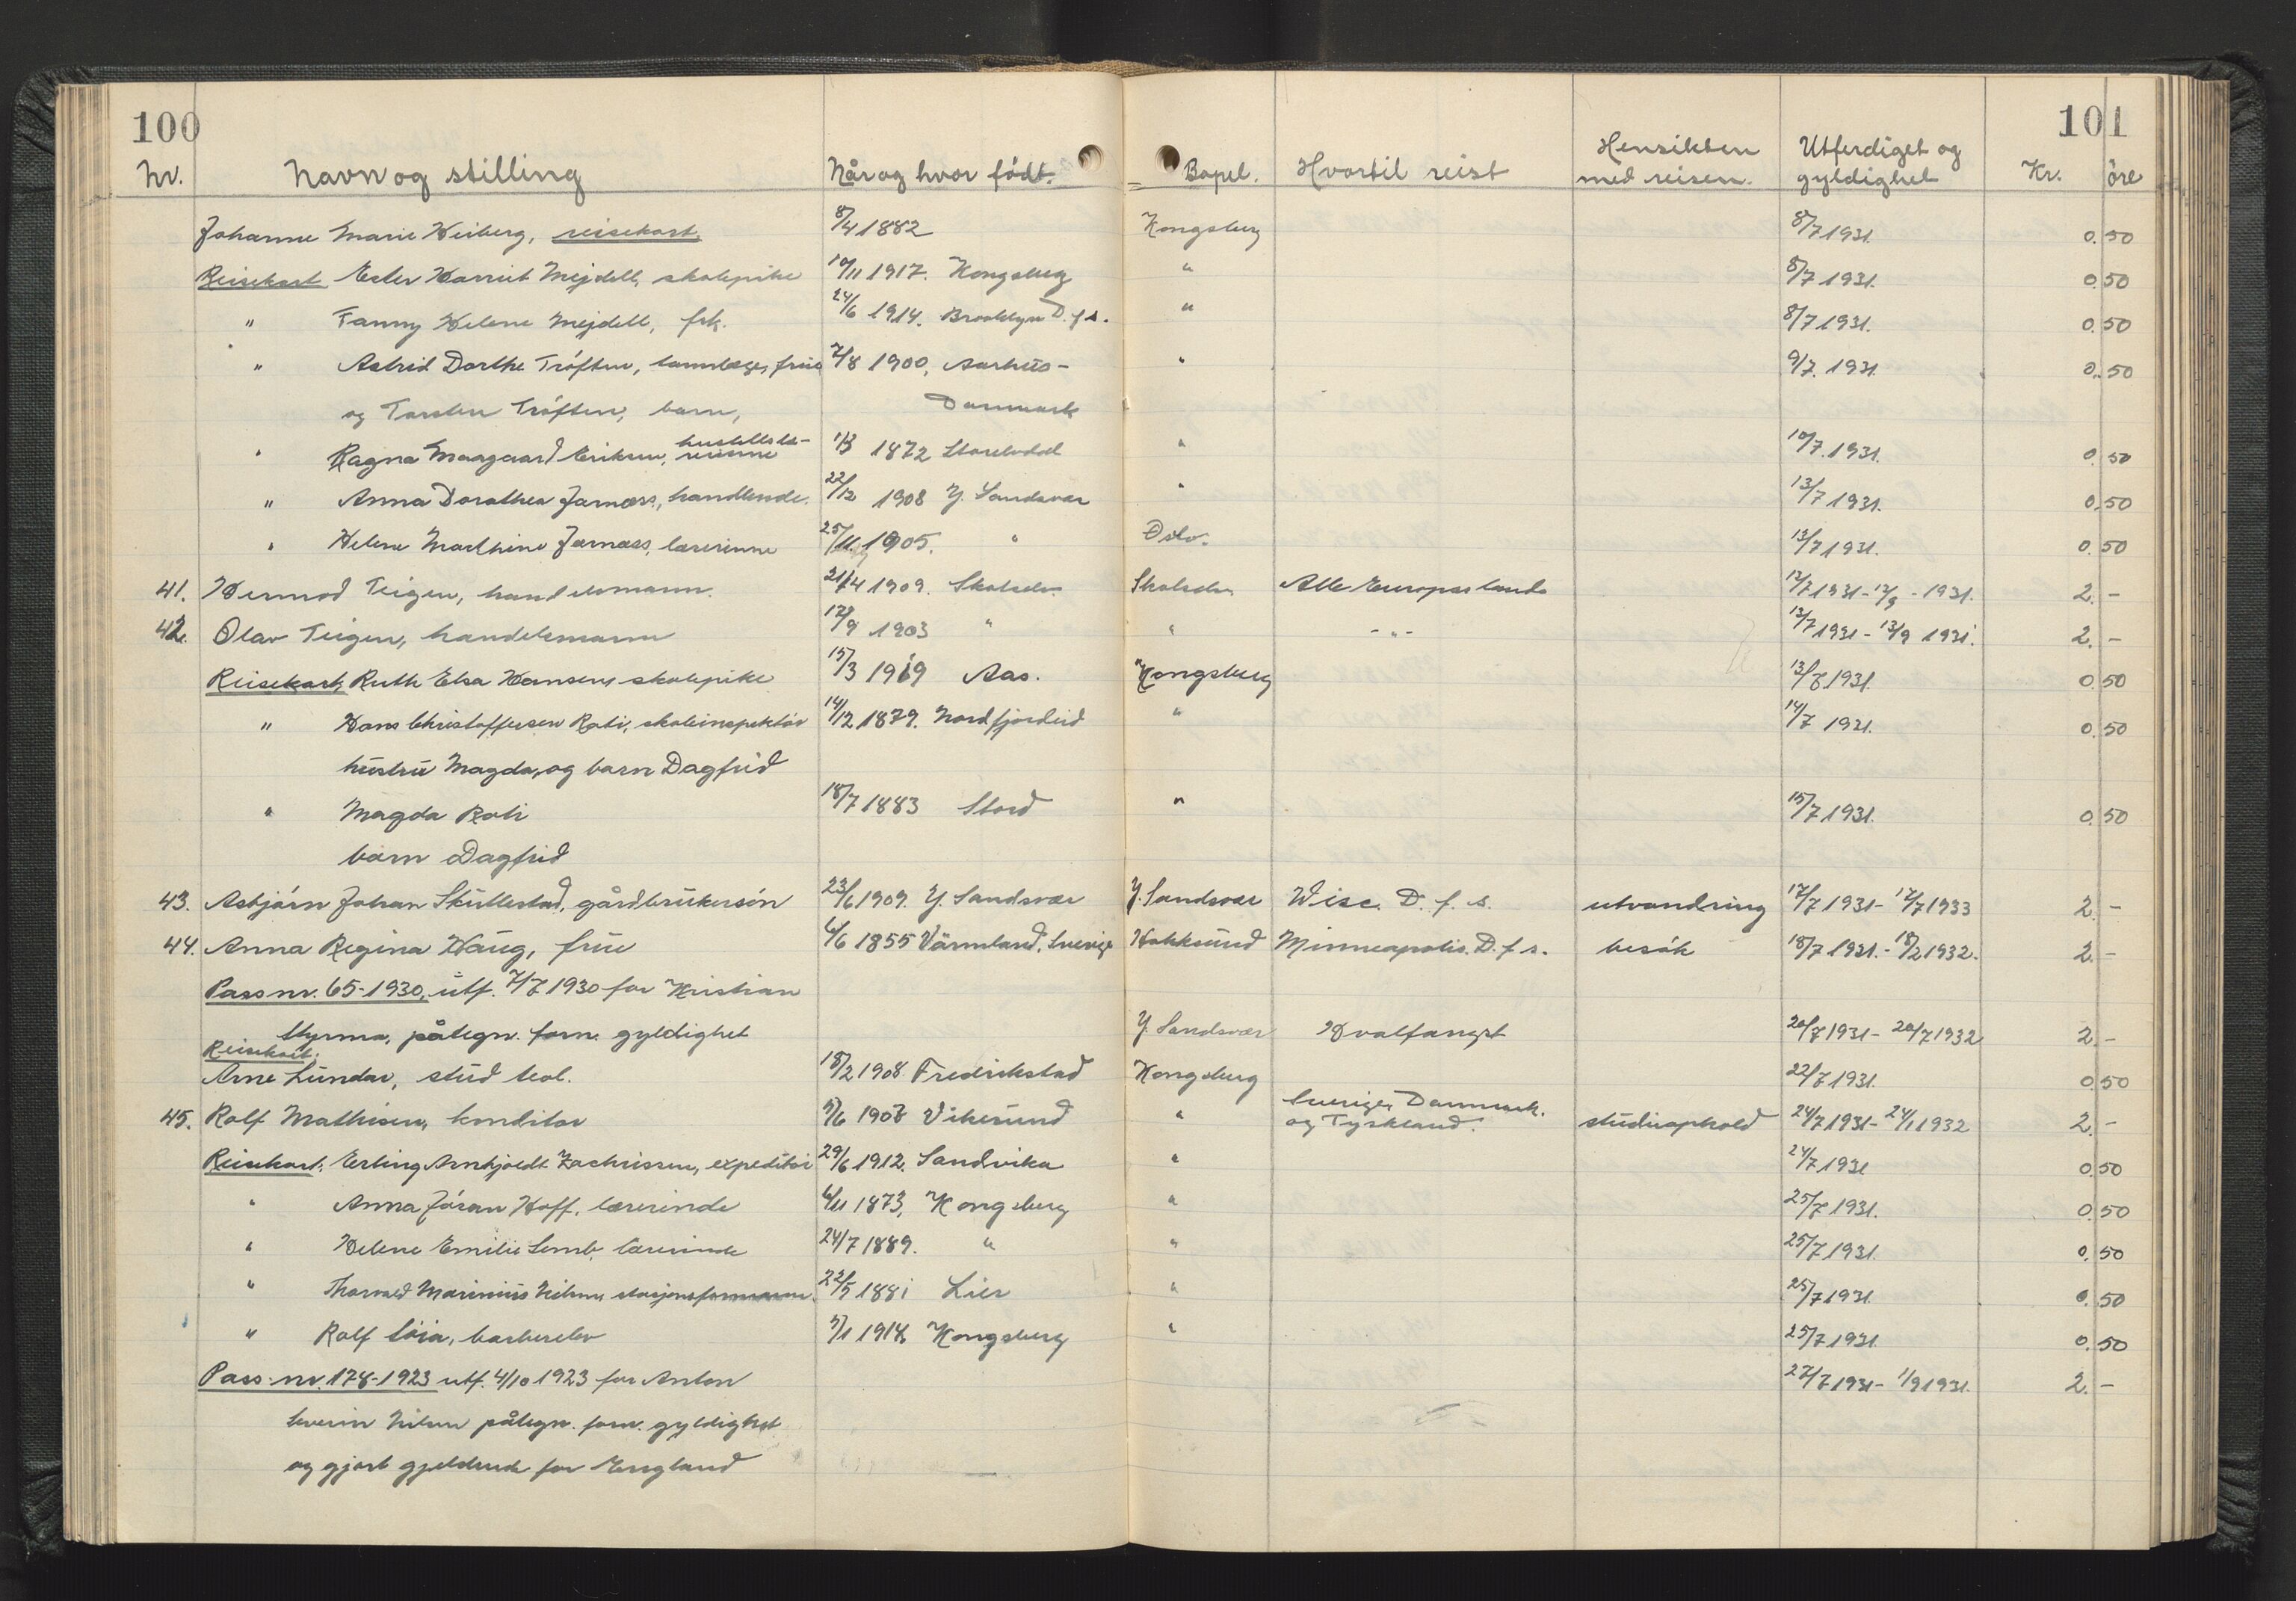 100
101
Nr. Navn og stilling Når og hvor født. Bopel. Hvortil reist Hensikten med reisen. Utferdiget og gyldighet Kr. öre
Johanne Marie Heiberg, reisekort. 8/4 1882 Kongsberg 8/7 1931. 0.50
Reisekort Ester Harriet Mejdell, skolepike 10/11 1917. Kongsberg " 8/7 1931. 0.50
" Fanny Helene Mejdell, frk. 24/6 1914. Brooklyn D.f.s. " 8/7 1931. 0.50
" Astrid Dorthe Tröften, tannlæge, frue 7/8 1900, Aarhus- " 9/7. 1931. 0.50
og Torsten Tröften, barn, Danmark
" Ragna Maagaard Eriksen, 1/3 1872 " 10/7. 1931. 0.50
" Anna Dorothea Jarnæss, handlende. 22/12 1908 Y. Sandsvær " 13/7 1931. 0.50
" Helene Marthine Jarnæss, lærerinne 25/11 1905. " Oslo. 13/7 1931. 0.50
41. Hermod Teigen, handelsmann. 21/4 1909. Skotselv. Skotselv Alle Europas lande 12/7 1931-12/9-1931. 2.-
42. Olav Teigen, handelsmann 17/9 1903 " " -"- 13/7 1931-13/9 1931. 2.-
Reisekort, Ruth Elsa Hansen, skolepike 15/3 1919 Aas. Kongsberg 13/7 1931. 0.50
" Hans Christoffersen Roti, skoleinspektör 14/12 1879. Nordfjordeid " 14/7 1931. 0.50
hustru Magda, og barn Dagfrid
" Magda Roti 18/7 1883 Stord " 15/7 1931. 0.50
barn Dagfrid
43. Asbjörn Johan Skullestad, gårdbrukersön 23/6 1909. Y. Sandsvær Y. Sandsvær Wisc. D. f. s. utvandring 17/7 1931-17/7 1933 2.-
44. Anna Regina Haug, frue 6/6 1855 Värmland, Sverige Hokksund Minneapolis. D.f.s. besök 18/7 1931.-18/2 1932. 2.-
Pass nr. 65-1930, utf. 7/7 1930 for Kristian
Styrmo, påtegn. forn. gyldighet Y. Sandsvær Hvalfangst 20/7 1931-20/7 1932 2.-
Reisekort.
Arne Lundar, stud teol. 18/2 1908. Fredrikstad Kongsberg 22/7 1931. 0.50
45. Rolf Mathisen, konditor 5/6 1907 Vikersund " Sverige, Danmark. og Tyskland. studieophold 24/7 1931-24/1 1932 2.-
Reisekort. Erling Arnhjoldt Zachrissen, expeditör 29/6 1912. Sandvika " 24/7 1931 0.50
" Anna Jöran Hoff, lærerinde 6/11 1873, Kongsberg " 25/7 1931. 0.50
" Helene Emilie Lemb, lærerinde 24/7 1889. " " 25/7 1931. 0.50
" Thorvald Marinius Nilsen, stasjonsformann. 22/5 1881 Lier " 25/7 1931. 0.50
" Rolf Söia, barberelev 5/1 1914 Kongsberg " 25/7 1931. 0.50
Pass. nr. 178-1923 utf. 4/10 1923 for Anton 27/7 1931-1/9 1931. 2.-
Severin Nilsen påtegn. forn. gyldighet
og gjort gjeldende for England